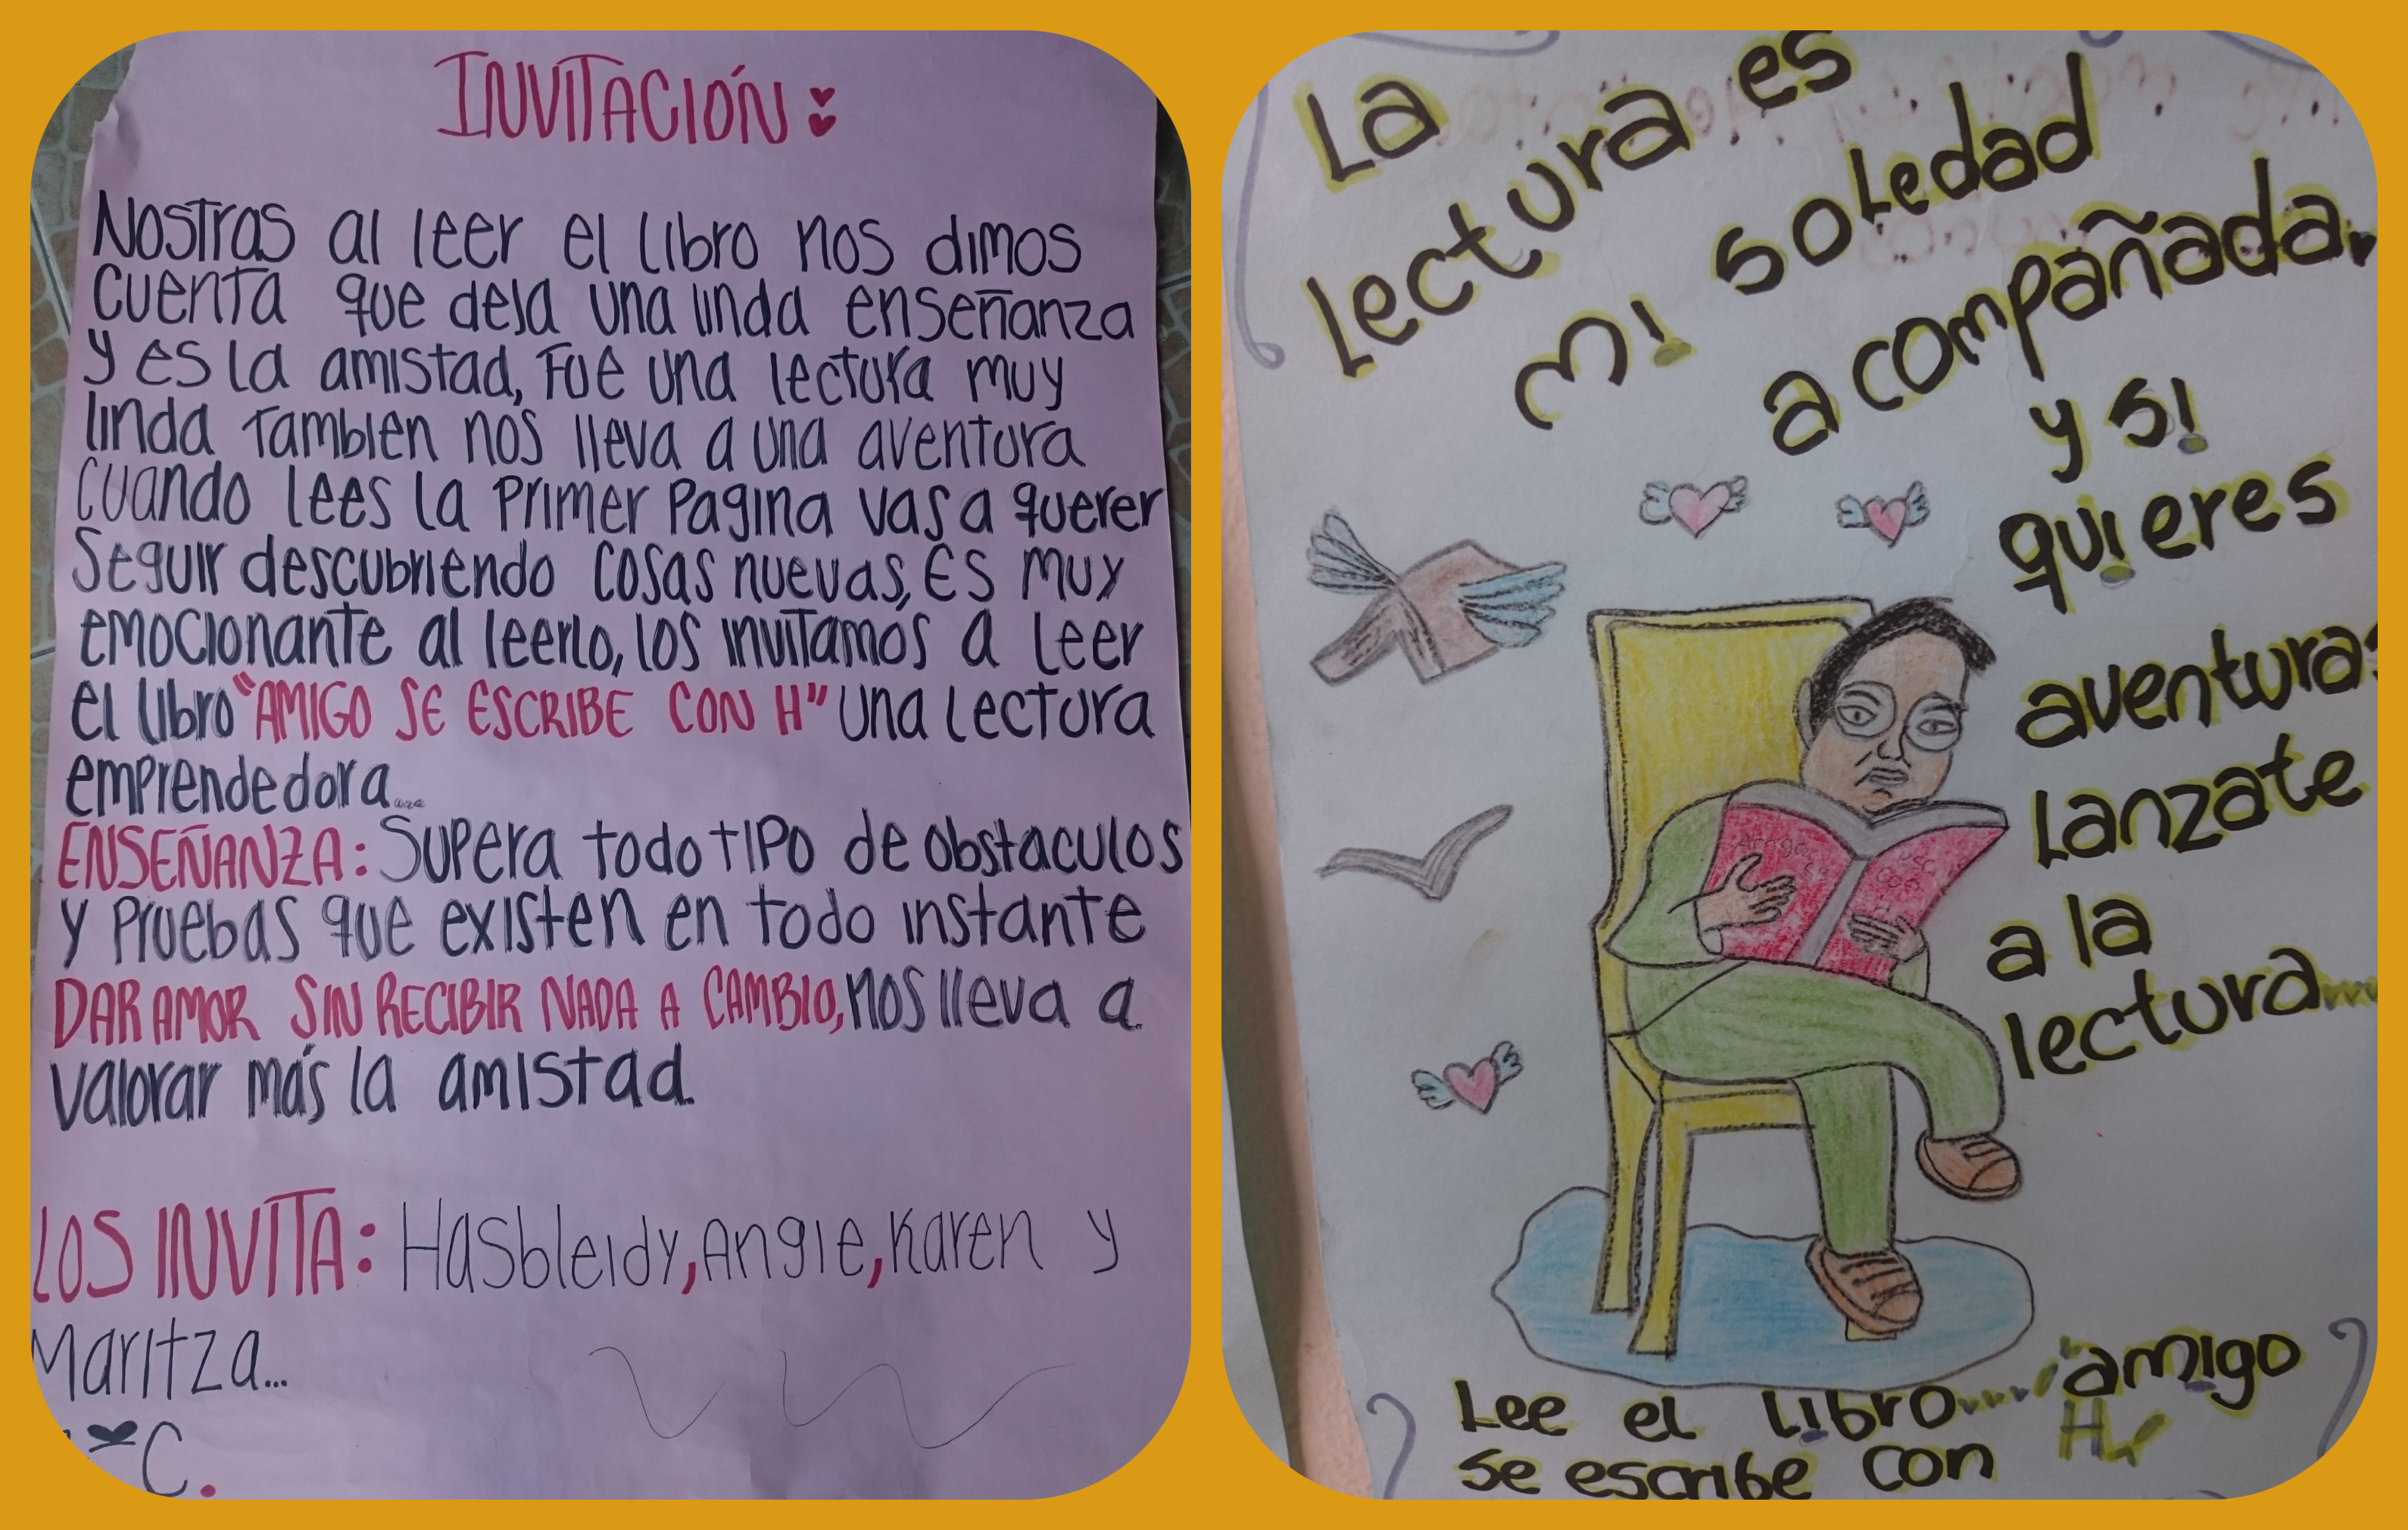 INVITACIÓN:
Nostras al leer el libro nos dimos
cuenta que deja una linda enseñanza
y es la amistad, Fue una lectura muy
linda Tambien nos lleva a una aventura
cuando lees la primer pagina vas a querer
Seguir descubriendo cosas nuevas, Es muy
emocionante al leerlo, los invitamos a leer
el libro "AMIGO SE ESCRIBE CON H" una lectura
emprendedora...
ENSEÑANZA: Supera todo tipo de obstaculos
y pruebas que existen en todo instante
DAR AMOR SIN RECIBIR NADA A CAMBIO, nos lleva a
valorar más la amistad.
LOS INVITA: Hasbleidy, Angie, Karen y
Maritza...
C.
La
lectura es
mi soledad
acompañada.
y si
quieres
aventuras
Lanzate
a la
lectura....
Lee el libro.... "amigo
se escribe con H"